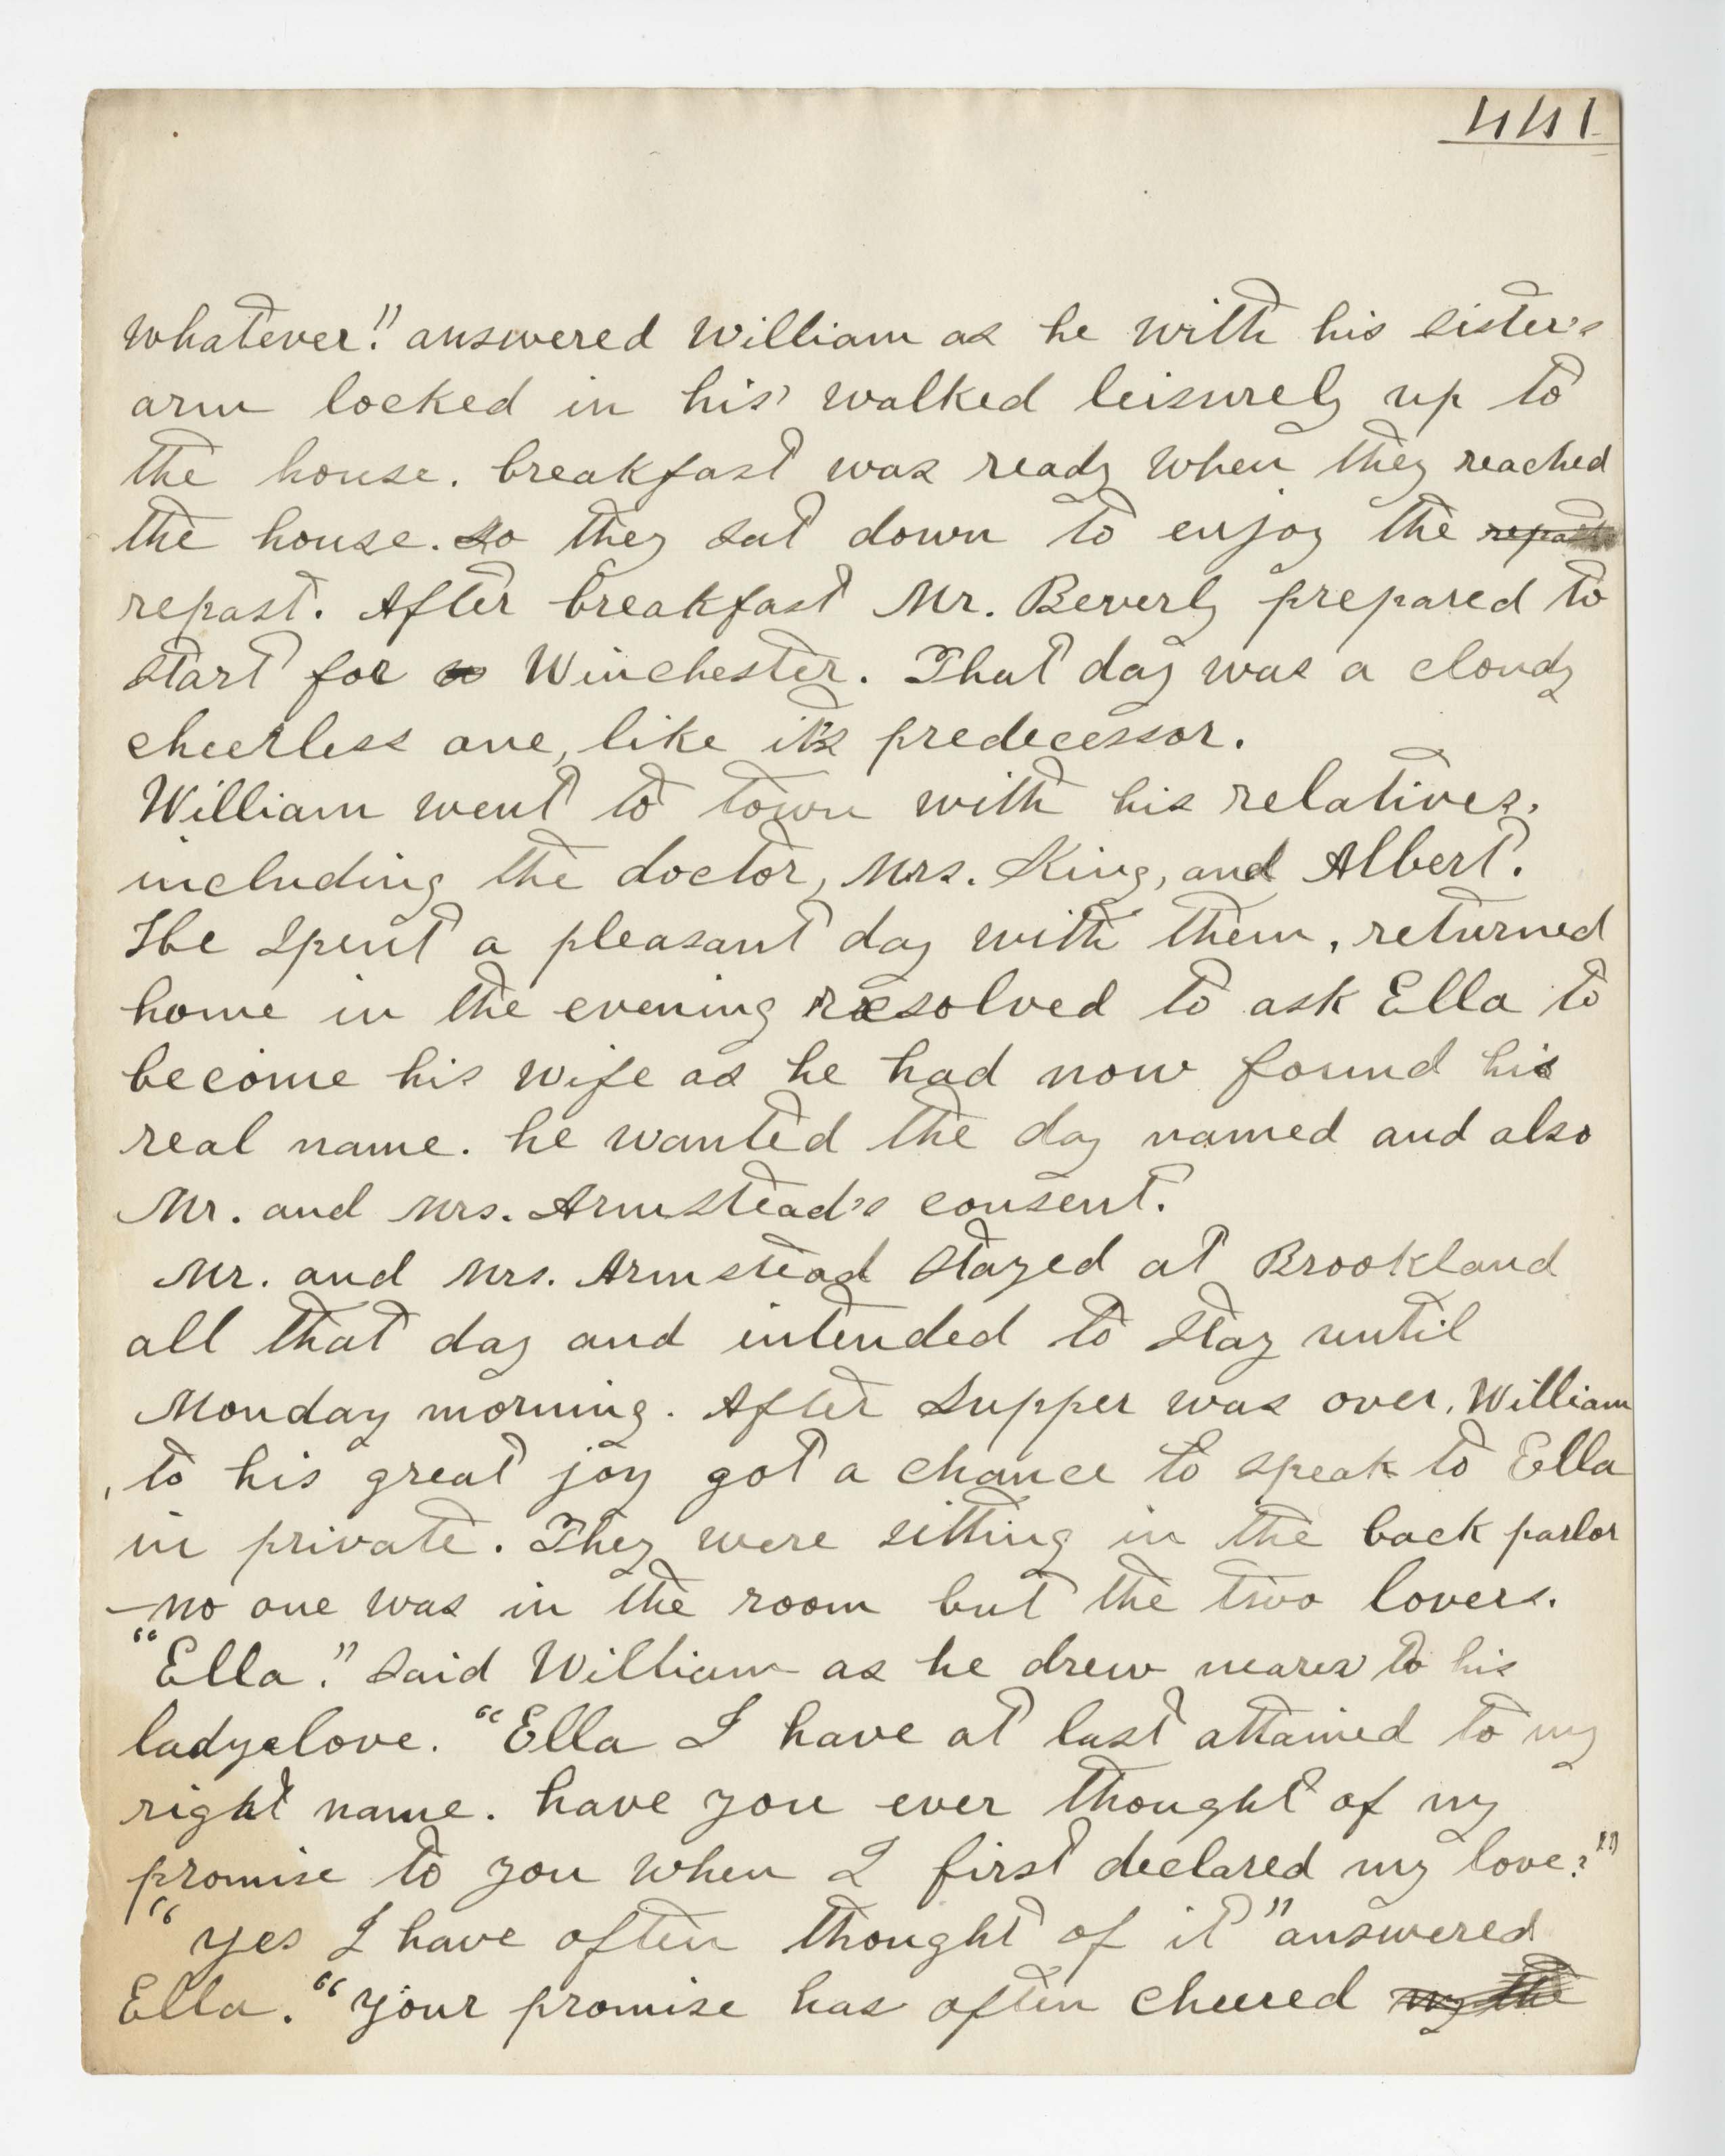 441
whatever!" answered William as he with his sister's
arm locked in his walked leisurely up to
the house. breakfast was ready when they reached
the house. So they sat down to enjoy the repast
repast. After breakfast Mr. Beverly prepared to
start for Winchester. That day was a cloudy
cheerless one, like its predecessor.
William went to town with his relatives,
including the doctor, Mrs. King, and Albert.
He spent a pleasant day with them, returned
home in the evening resolved to ask Ella to
become his wife as he had now found his
real name. he wanted the day named and also
Mr. and Mrs. Armstead's consent.
Mr. and Mrs. Armstead stayed at Brookland
all that day and intended to stay until
Monday morning. After supper was over, William
, to his great joy got a chance to speak to Ella
in private. They were sitting in the back parlor
—no one was in the room but the two lovers.
"Ella." said William as he drew nearer to his
ladyelove. "Ella I have at last attained to my
right name. have you ever thought of my
promise to you when I first declared my love?"
"yes I have often thought of it" answered
Ella. "your promise has often cheered my the